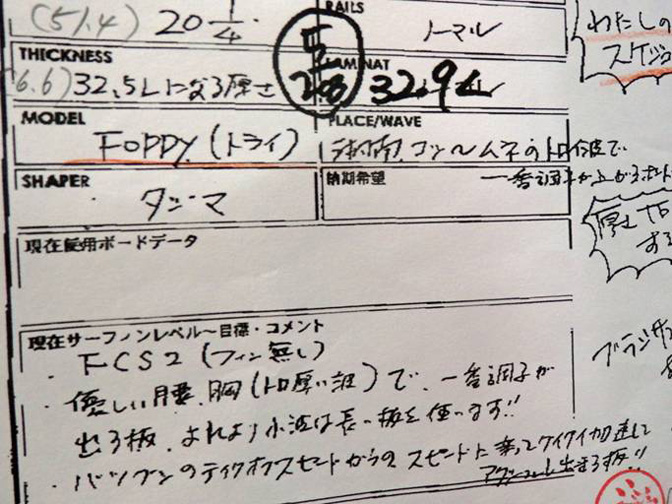 (51.4) 20 1/4
RAILS
ノーマル
わたしの
スケジュ
THICKNESS
(6.6) 32.5Lになる厚さ
LAMINAT
2 5/8 32.9L
MODEL
FOPPY (トライ)
PLACE/WAVE
湘南 コシ〜ムネのトロイ波で
一番調子が上がる
SHAPER
タジマ
納期希望
厚さ
現在使用ボードデータ
現在サーフィンレベル〜目標・コメント
・FCS2 (フィン無し)
・優しい腰、胸 (トロ厚い波) で、一番調子が
出る板、それより小波は長い板を使います!!
・バツグンのテイクオフスピードからの スピードに乗ってグイグイ加速して
アクションし出来る板!!